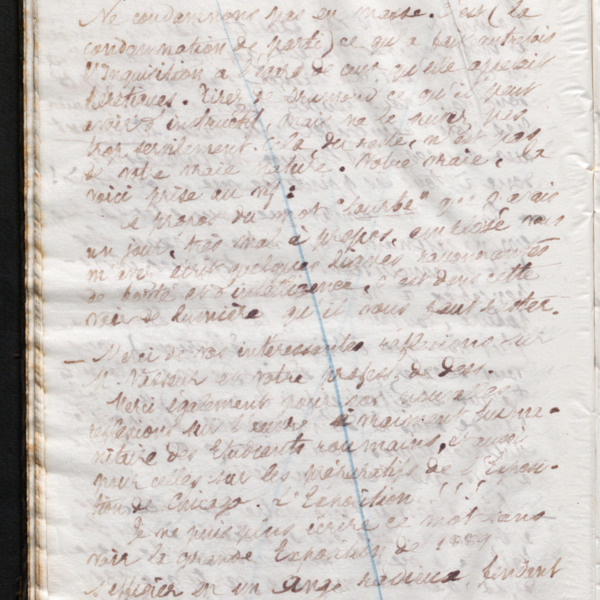 Ne condamnons pas en masse. C'est (la
condamnation de parti) ce qu'a fait autrefois
l'Inquisition à l'égard de ceux qu'elle appelait
hérétiques. Tirez de Drumond ce qu'il peut
avoir d'instructif mais ne le suivez pas
trop servilement. Cela, du reste, n'est pas
votre vraie nature. Votre vraie, la
voici prise au vif :
À propos du mot "fourbe" que j'avais
un jour, très mal à propos, employé vous
m'avez écrit quelques lignes rayonnantes
de bonté et d'intelligence, c'est dans cette
voie de lumière qu'il vous faut rester.
— Merci de vos intéressantes réflexions sur
M. et votre profess. de dess.
Merci également pour vos
réflexions sur l'œuvre si vraiment
des Etudiants roumains, et aussi
pour celles sur les préparatifs de l'Exposi-
tion de Chicago. L'Exposition !!!
Je ne puis plus écrire ce mot sans
voir la grande Exposition de 1889
en un Ange radieux fendant